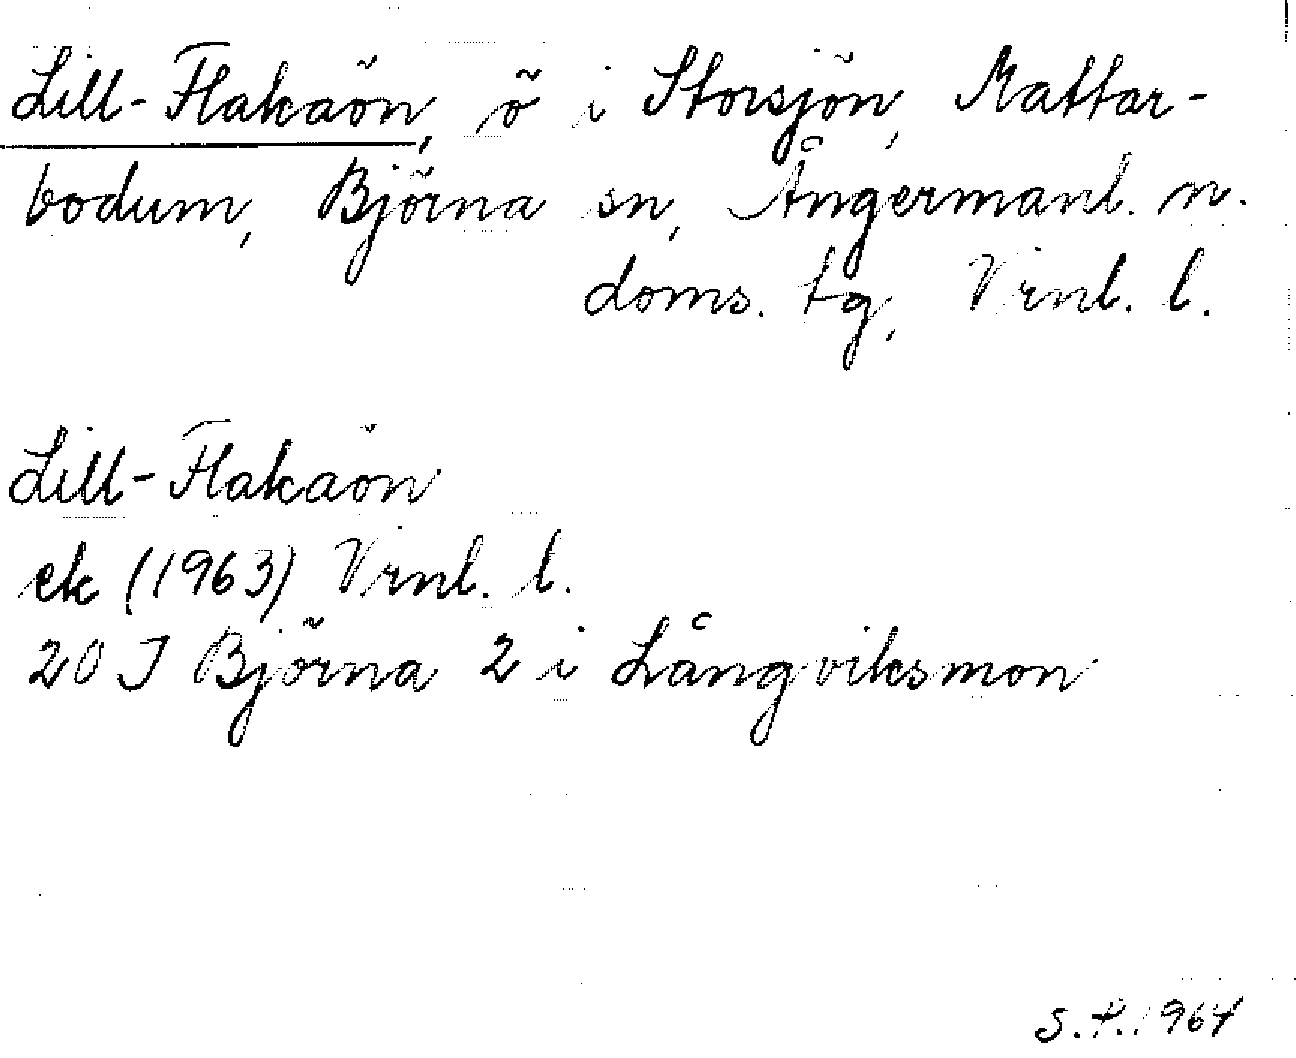 Lill-Flakaön, ö i Storsjön, Mattar-
bodum, Björna sn, Ångermanl. n.
doms. tg, Vrnl. l.
Lill-Flakaön
ek (1963) Vrnl. l.
20 J Björna 2 i Långviksmon
S.P. 1964